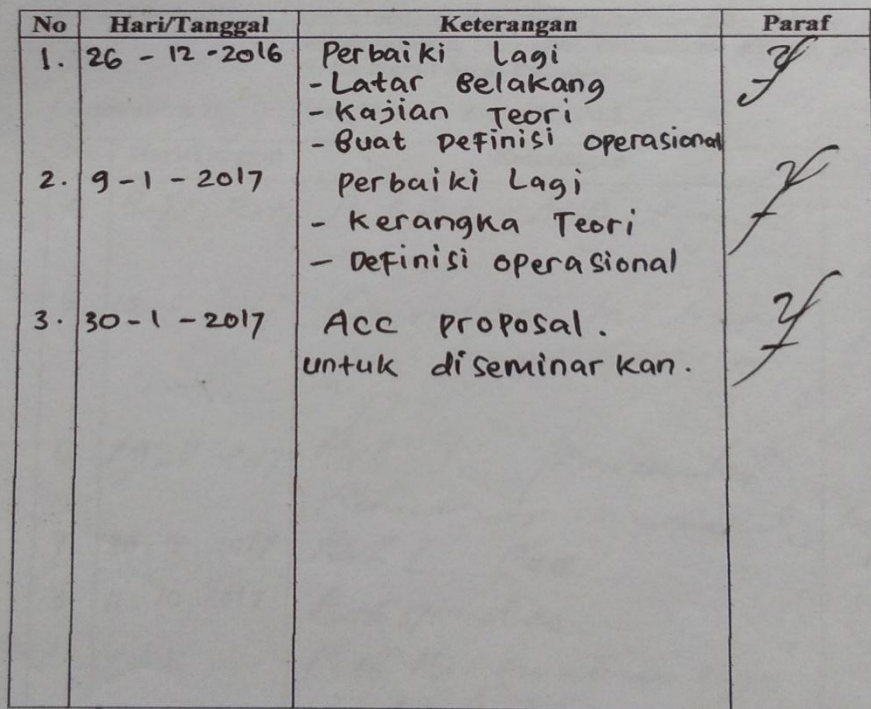 No Hari/Tanggal Keterangan Paraf
1. 26 - 12 - 2016 Perbaiki Lagi
- Latar Belakang
- Kajian Teori
- Buat Definisi operasional
2. 9 - 1 - 2017 Perbaiki Lagi
- Kerangka Teori
- Definisi operasional
3. 30 - 1 - 2017 Acc proposal.
untuk diseminarkan.